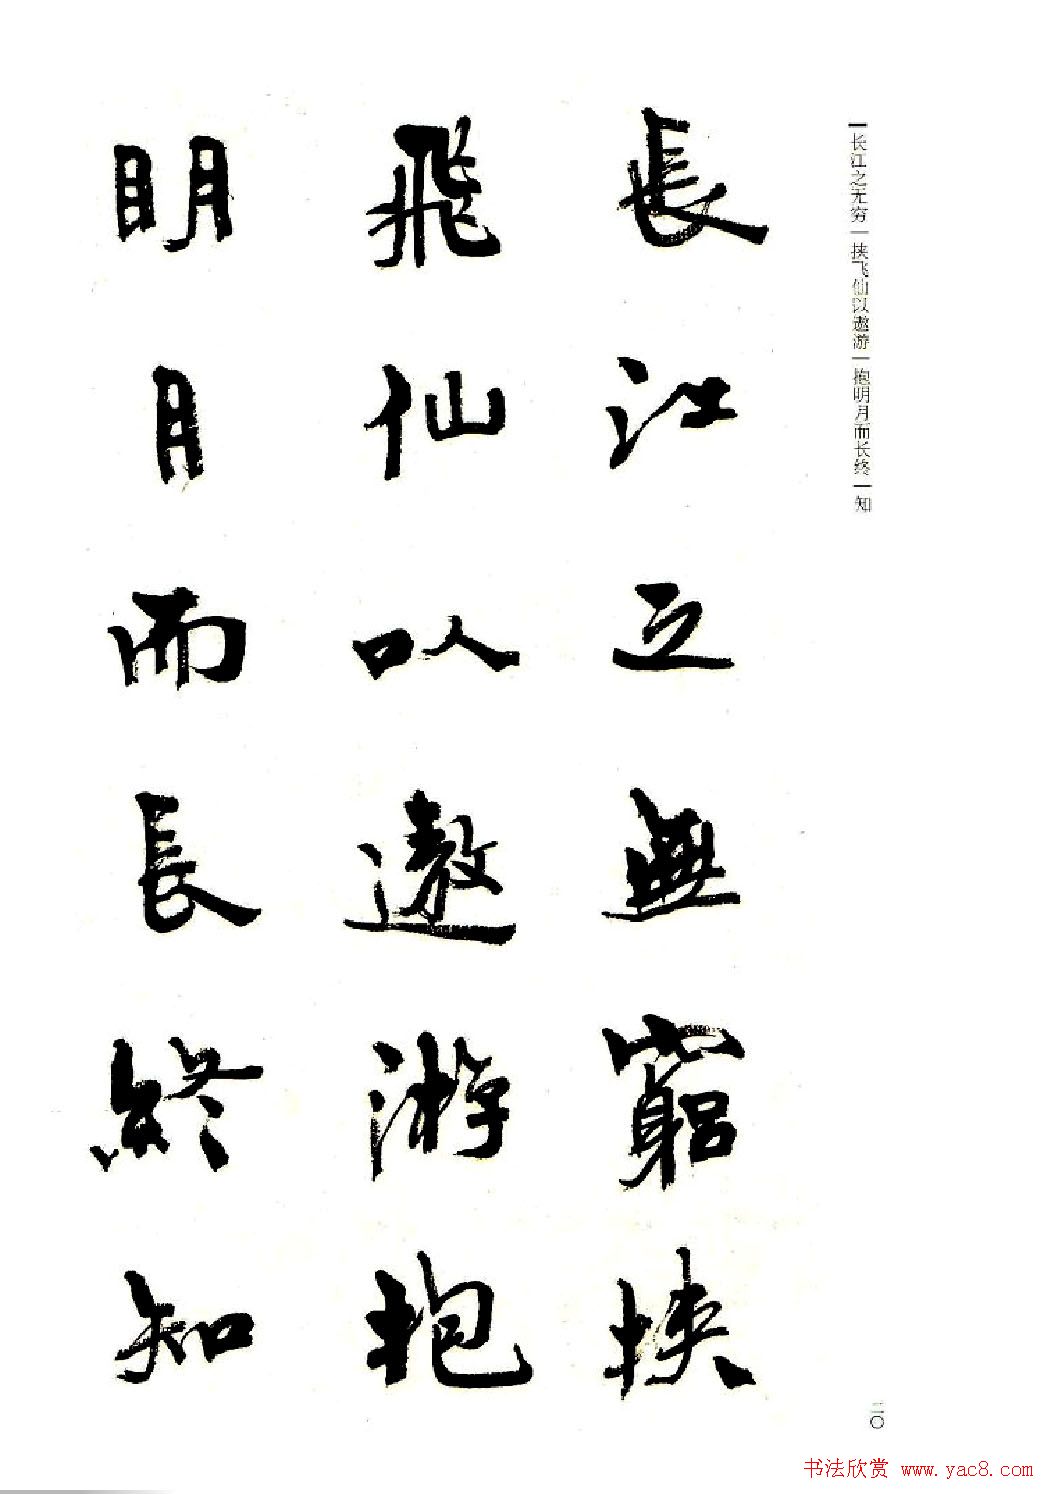 长江之无穷 挟飞仙以遨游 抱明月而长终 知
長江之無窮挾
飛仙以遨游抱
明月而長終知
二〇
书法欣赏 www.yac8.com